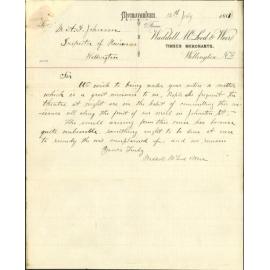 Memorandum. 12th July 1881
From
Waddell, McLeod & Weir
TIMBER MERCHANTS,
Wellington, N.Z.
To
Mr A. F. Johnson
Inspector of Nuisances
Wellington
Sir
We wish to bring under your notice a matter
which is a great nuisance to us. People who frequent the
theatre at night are in the habit of committing this nu-
isance all along the front of our mill in Johnston St.
The smell arising from this cause has become
quite unbearable, something ought to be done at once
to remedy the evil complained of, and we remain
Yours truly
Waddell McLeod Weir